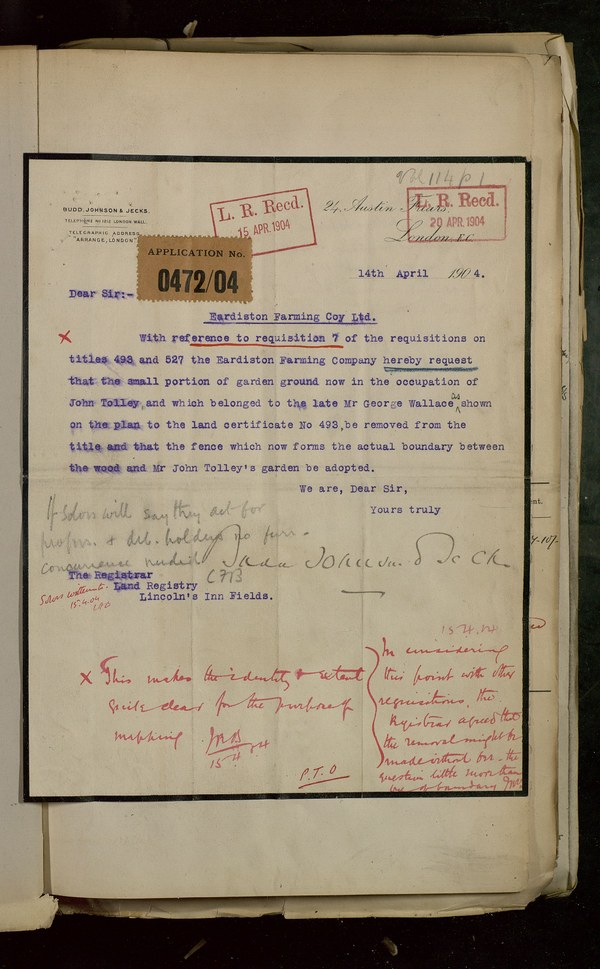 Vol 114 p 1
BUDD, JOHNSON & JECKS.
TELEPHONE Nº 1912 LONDON WALL.
TELEGRAPHIC ADDRESS
"ARRANGE, LONDON"
L. R. Recd.
15 APR. 1904
24, Austin Friars,
London E.C.
L. R. Recd.
20 APR. 1904
APPLICATION No.
0472/04
14th April 1904.
Dear Sir:-
Eardiston Farming Coy Ltd.
x With reference to requisition 7 of the requisitions on
titles 493 and 527 the Eardiston Farming Company hereby request
that the small portion of garden ground now in the occupation of
John Tolley, and which belonged to the late Mr George Wallace, as shown
on the plan to the land certificate No 493, be removed from the
title and that the fence which now forms the actual boundary between
the wood and Mr John Tolley's garden be adopted.
We are, Dear Sir,
Yours truly
If Solors will say they act for
propr. & deb. holders no furr.
concurrence needed.
Budd Johnson & Jecks
The Registrar
Land Registry
Lincoln's Inn Fields.
15.4.04
x This makes the identity & extent
quite clear for the purpose of
mapping
15 4 04
P.T.O
In considering
this point with other
requisitions, the
Registrar agreed that
the removal might be
made without
question little more than
one of boundary